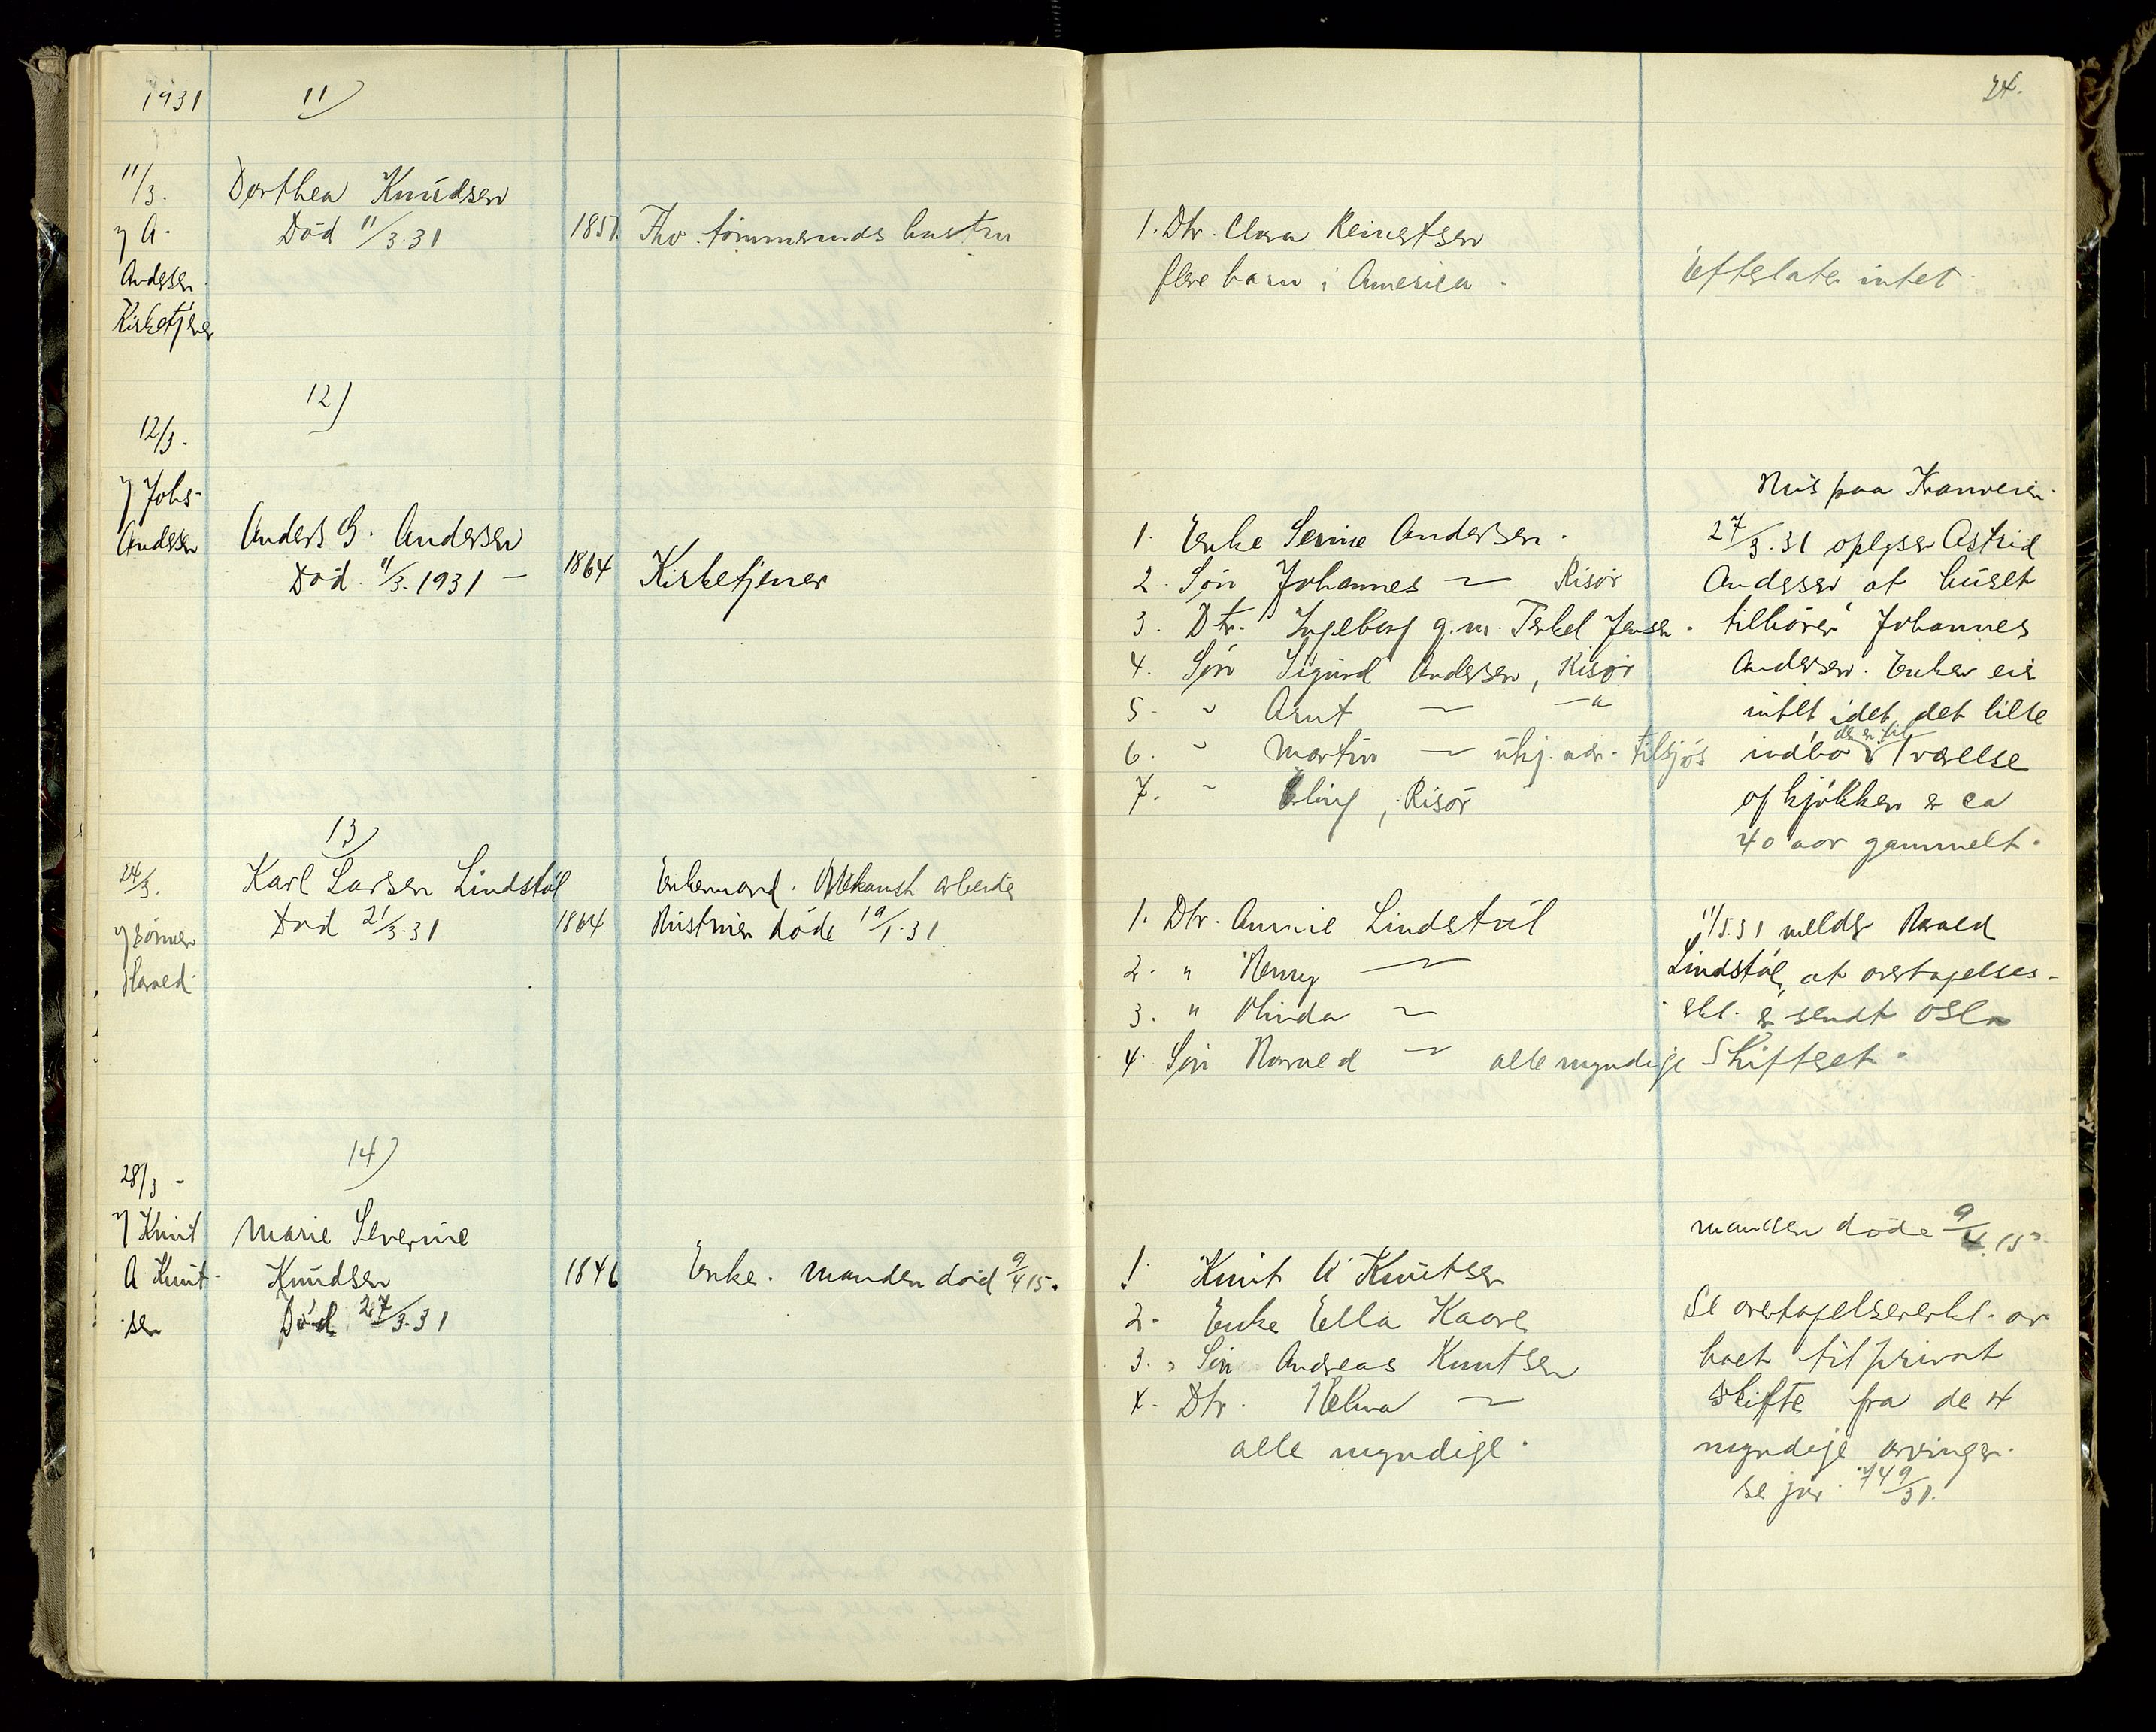 1931
11)
24.
11/3.
Dorthea Knudsen
7 A.
Død 11/3.31
1851.
tømmermands hustru
Andersen
Kirketjener
1. Dtr. Clara Reinertsen
flere barn i America.
Efterlater intet
12)
12/3.
7 Johs.
Andersen
Anders G. Andersen
Død 11/3.1931 –
1864
Kirketjener
1. Enke Serine Andersen.
2. Søn Johannes — Risør
3. Dtr. Ingeborg g.m. Terkel Jensen.
4. Søn Sigurd Andersen, Risør
5. " Arnt — — "
6. " Martin — tilsjøs
7. " Erling, Risør
Hus paa
27/3.31 oplyser Astrid
Andersen at huset
tilhører Johannes
Andersen. Enken eier
intet idet det lille
indbo der er til 1 værelse
og kjøkken er ca
40 aar gammelt.
13)
24/3.
Karl Larsen Lindstøl
7 sønnen
Harald
Død 21/3.31
1864.
Enkemand. Mekanisk arbeider
Hustruen døde 19/1.31.
1. Dtr. Annie Lindstøl
2. " Henny —
3. " Olinda —
4. Søn Harald — alle myndige
11/5.31 melder Harald
Lindstøl, at overtagelses-
erkl. er sendt Oslo
Skifteret.
14)
28/3 –
7 Knut
A Knut-
sen
Marie Severine
Knudsen
Død 27/3.31
1846
Enke. Manden død 9/4 15.
1. Knut A Knutsen
2. Enke Ella Kaore
3. Søn Andreas Knutsen
4. Dtr. Helma —
alle myndige.
manden døde 9/4.15
Se overtagelseserkl. av
boet til privat
skifte fra de 4
myndige arvinger.
se jor. 749/31.